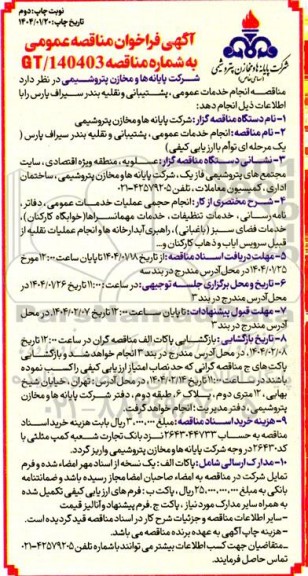 نوبت چاپ: دوم
تاریخ چاپ: ۱۴۰۴/۰۱/۲۰
شرکت پایانه ها و مخازن پتروشیمی
(سهامی خاص)
آگهی فراخوان مناقصه عمومی
به شماره مناقصه GT/140403
شرکت پایانه ها و مخازن پتروشیمی در نظر دارد
مناقصه انجام خدمات عمومی، پشتیبانی و نقلیه بندر سیراف پارس را با
اطلاعات ذیل انجام دهد:
۱- نام دستگاه مناقصه گزار: شرکت پایانه ها و مخازن پتروشیمی
۲- نام مناقصه: انجام خدمات عمومی، پشتیبانی و نقلیه بندر سیراف پارس (
یک مرحله ای توأم با ارزیابی کیفی)
۳- نشانی دستگاه مناقصه گزار: عسلویه، منطقه ویژه اقتصادی، سایت
مجتمع های پتروشیمی فاز یک، شرکت پایانه ها و مخازن پتروشیمی، ساختمان
اداری، کمیسیون معاملات، تلفن ۴۲۵۷۹۲۰۵-۰۲۱
۴- شرح مختصری از کار: انجام حجمی عملیات خدمات عمومی، دفاتر،
نامه رسانی، خدمات تنظیفات، خدمات مهمانسراها( خوابگاه کارکنان)،
خدمات فضای سبز (باغبانی)، راهبری آبدارخانه ها و انجام عملیات نقلیه از
قبیل سرویس ایاب و ذهاب کارکنان و...
۵- مهلت دریافت اسناد مناقصه: از تاریخ ۱۴۰۴/۰۱/۱۸ تا پایان ساعت ۱۲:۰۰ مورخ
۱۴۰۴/۰۱/۲۵ در محل آدرس مندرج در بند سه
۶- تاریخ و محل برگزاری جلسه توجیهی: در ساعت ۱۱:۰۰ تاریخ ۱۴۰۴/۰۱/۲۶ در
محل آدرس مندرج در بند ۳
۷- مهلت قبول پیشنهادات: تا پایان ساعت ۱۲:۰۰ تاریخ ۱۴۰۴/۰۲/۰۷ در محل
آدرس مندرج در بند ۳
۸- تاریخ بازگشایی: بازگشایی پاکات الف مناقصه گران در ساعت ۱۲:۰۰ تاریخ
۱۴۰۴/۰۲/۰۸، در محل آدرس مندرج در بند ۳ انجام خواهد شد و بازگشایی
پاکات ج مناقصه گرانی که حد نصاب امتیاز ارزیابی کیفی را کسب نموده
باشند در ساعت ۱۲:۰۰ تاریخ ۱۴۰۴/۰۲/۱۴ در محل آدرس: تهران، خیابان شیخ
بهایی، ۱۲ متری دوم، پلاک ۶، طبقه دوم، دفتر شرکت پایانه ها و مخازن
پتروشیمی، دفتر مدیریت: انجام خواهد گرفت.
۹- هزینه خرید اسناد مناقصه: مبلغ ۳,۰۰۰,۰۰۰ ریال بابت هزینه خرید اسناد
مناقصه به حساب ۲۶۴۳۰۴۴۷۳۳ نزد بانک تجارت شعبه کمپ مثلثی با
کد ۲۶۴۳۰ در وجه شرکت پایانه ها و مخازن پتروشیمی واریز گردد.
۱۰- مدارک ارسالی شامل: پاکات الف: یک نسخه از اسناد مهر امضاء شده و فرم
تمایل شرکت در مناقصه به امضاء صاحبان امضا مجاز رسیده باشد و ضمانتنامه
بانکی به مبلغ ۲۵,۰۰۰,۰۰۰,۰۰۰ ریال، پاکت ب: فرم های ارزیابی کیفی تکمیل شده
به همراه سایر مدارک مورد نیاز، پاکت ج: فرم پیشنهاد و آنالیز قیمت
- سایر اطلاعات مناقصه و جزئیات شرح کار در اسناد مناقصه قید گردیده است.
- هزینه چاپ آگهی به عهده برنده مناقصه می باشد.
- متقاضیان جهت کسب اطلاعات بیشتر می توانند با شماره تلفن ۴۲۵۷۹۲۰۵-۰۲۱
تماس حاصل فرمایند.